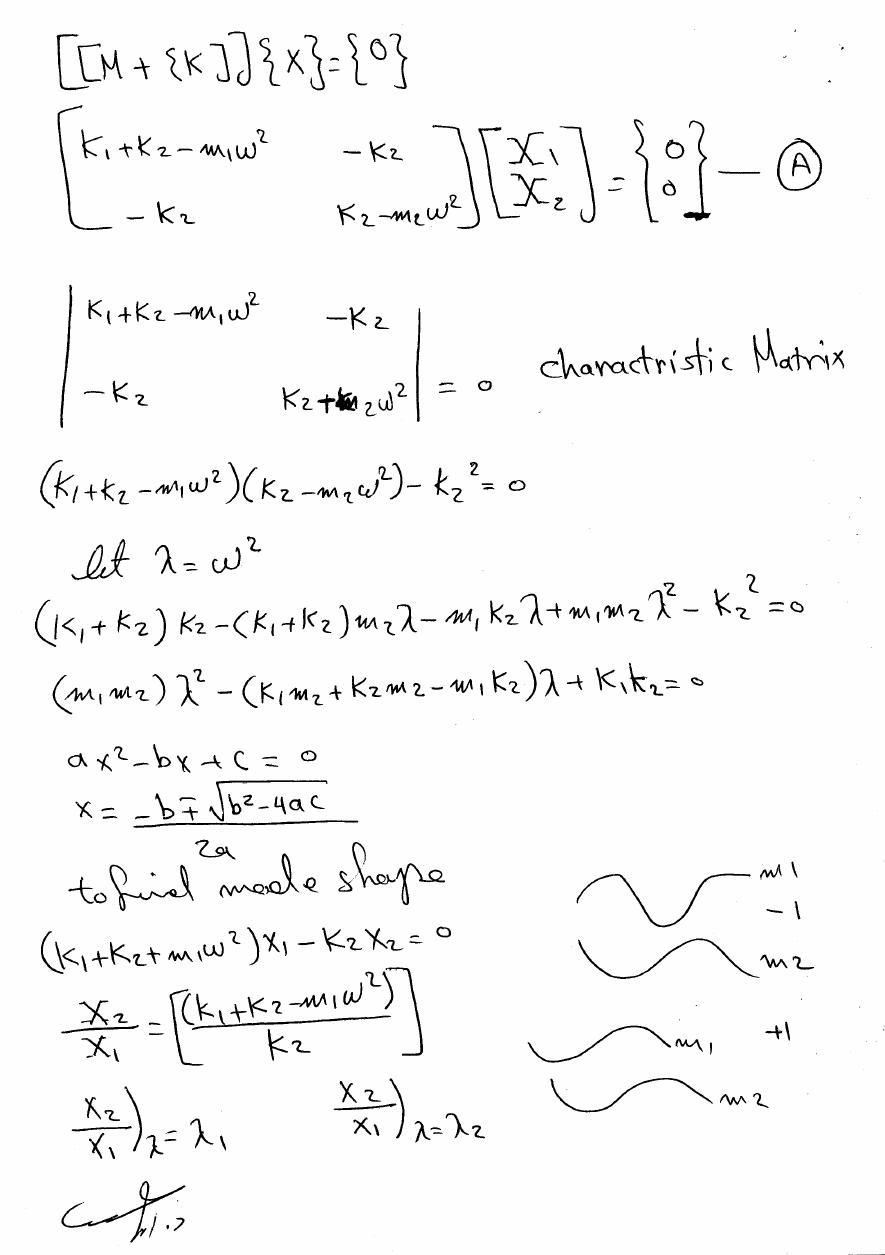 [[M + {K]]{X}={0}
[K₁+K₂-m₁ω² -K₂] [X₁] = {0} — Ⓐ
[-K₂ K₂-m₂ω²] [X₂] {0}
|K₁+K₂-m₁ω² -K₂|
|-K₂ K₂+m₂ω²| = 0 charactristic Matrix
(K₁+K₂-m₁ω²)(K₂-m₂ω²)-k₂²=0
let λ=ω²
(K₁+K₂)K₂-(K₁+K₂)m₂λ-m₁K₂λ+m₁m₂λ²-K₂²=0
(m₁m₂)λ²-(K₁m₂+K₂m₂-m₁K₂)λ+K₁k₂=0
ax²-bx+c=0
x= (-b∓√(b²-4ac))/2a
to find mode shape
(K₁+K₂+m₁ω²)X₁-K₂X₂=0
X₂/X₁=[(K₁+K₂-m₁ω²)/K₂]
X₂/X₁)λ=λ₁ X₂/X₁)λ=λ₂
m1
-1
m2
m₁ +1
m2